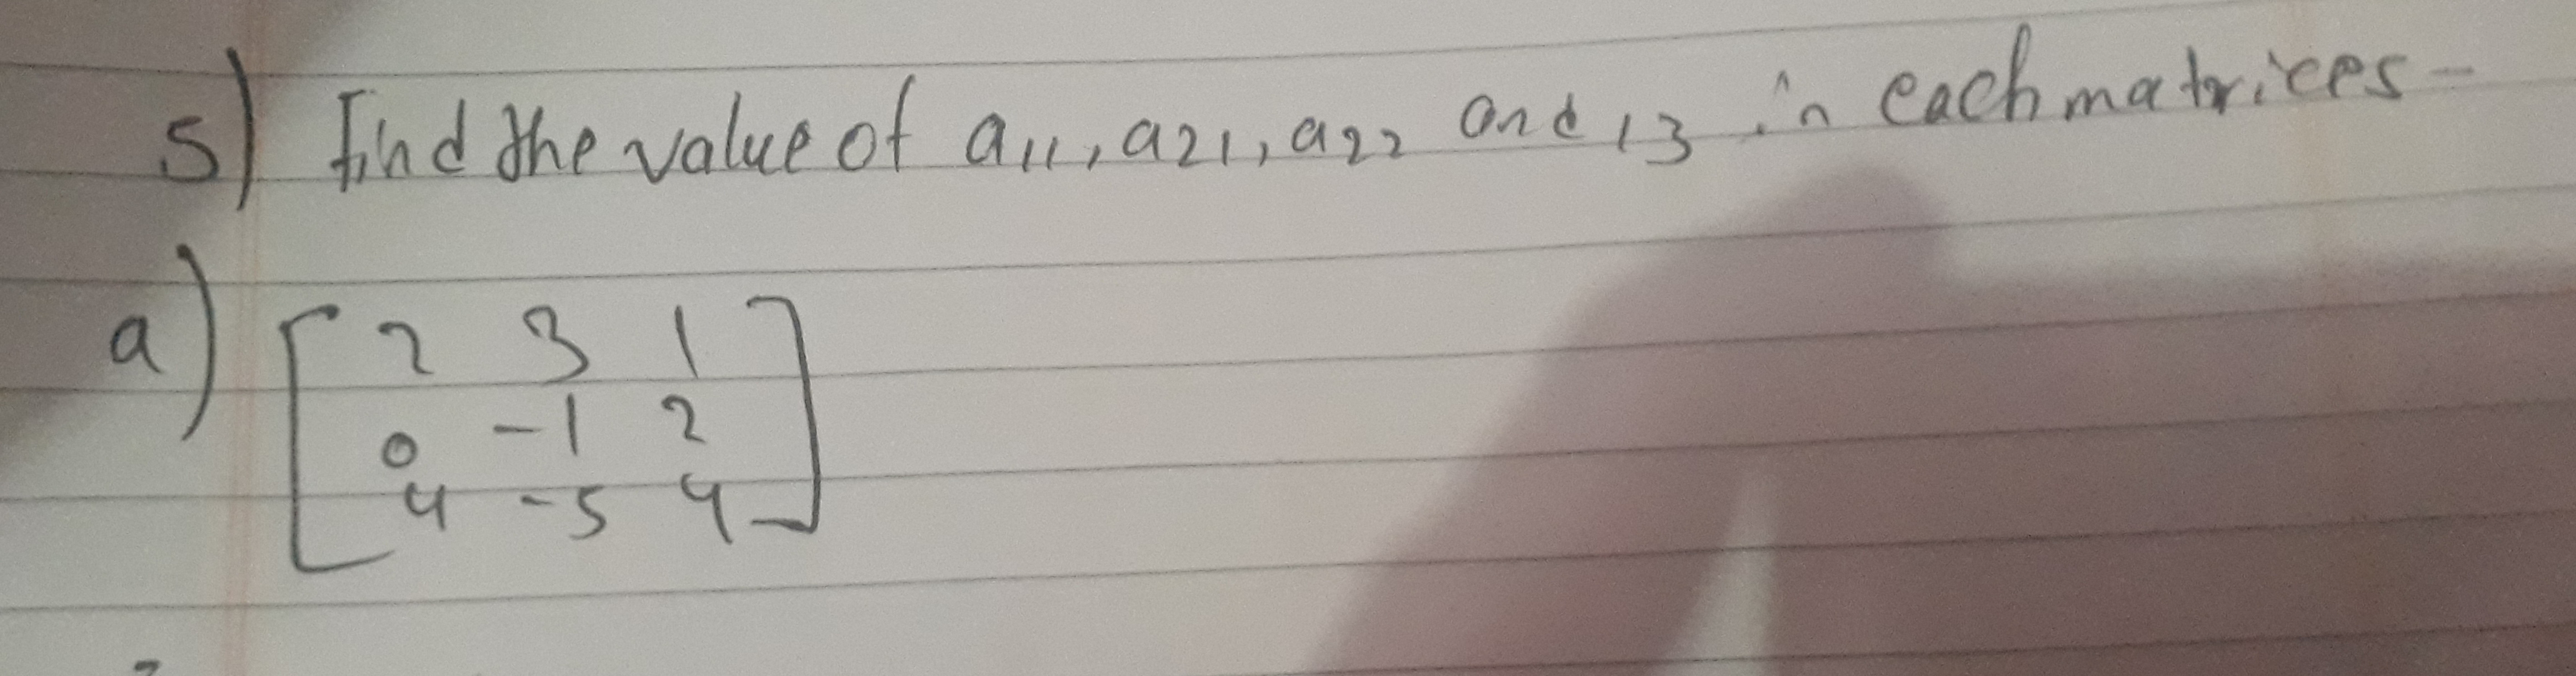 5) Find the value of a11, a21, a22 and 13 in each matrices-
a) [ 2 3 1
0 -1 2
4 -5 4 ]